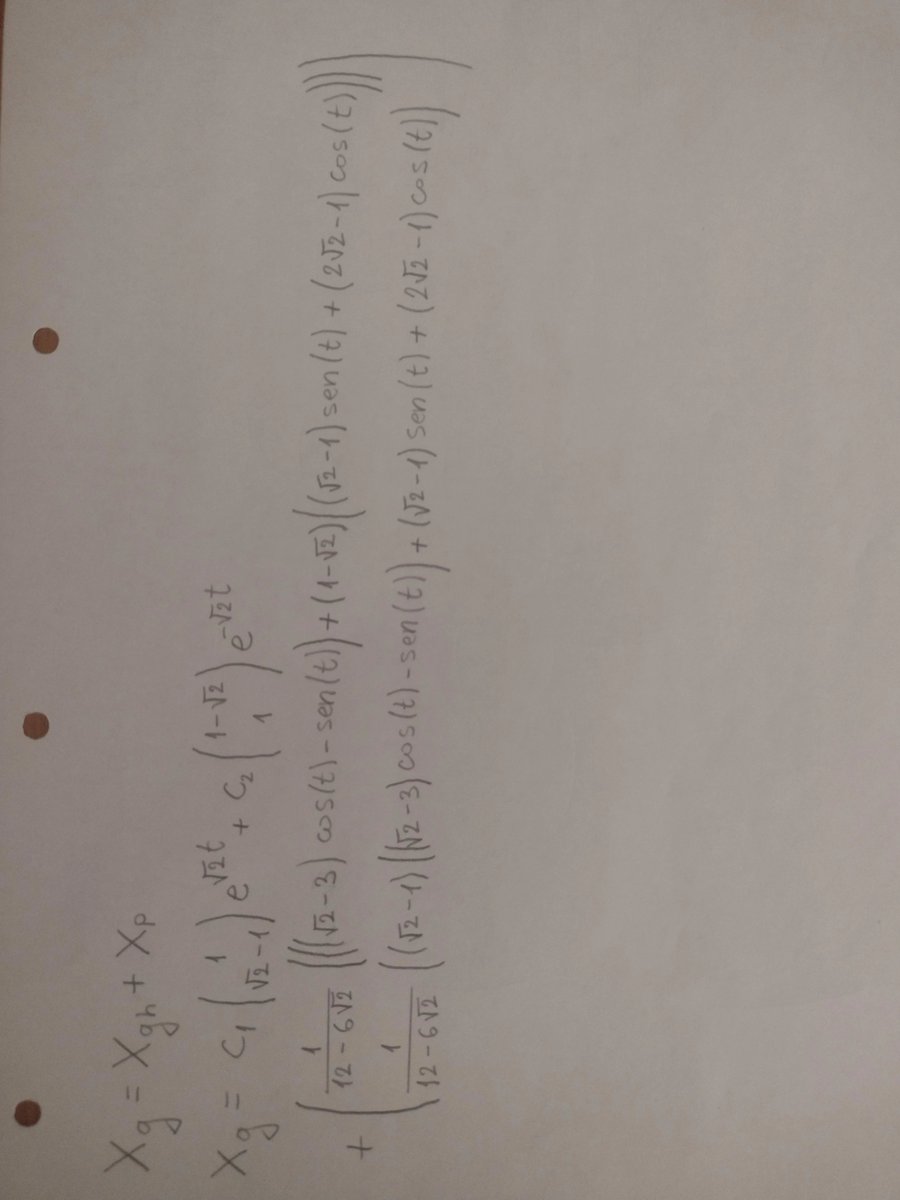 X_g = X_gh + X_p
X_g = C_1 (1 / √2-1) e^{√2t} + C_2 (1-√2 / 1) e^{-√2t}
+ ( 1/(12-6√2) ((((√2-3) cos(t) - sen(t)) + (1-√2)((√2-1) sen(t) + (2√2-1) cos(t))))
1/(12-6√2) ((√2-1)((√2-3) cos(t) - sen(t)) + (√2-1) sen(t) + (2√2-1) cos(t)) )